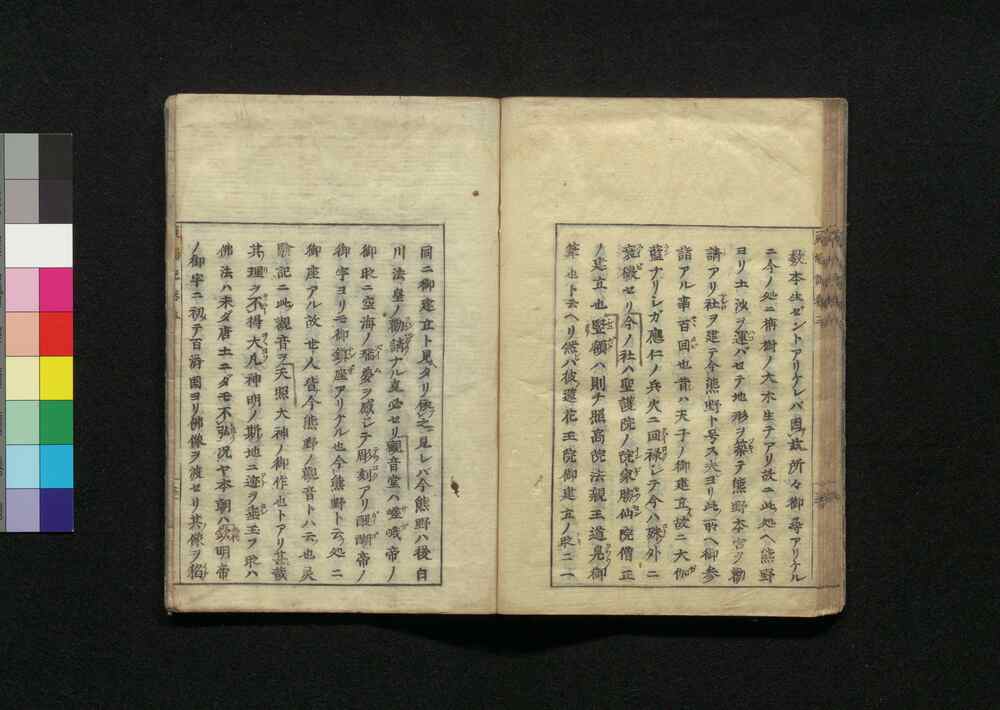 数本生ゼントアリケレバ因玆所々御尋アリケル
ニ今ノ処ニ椥樹ノ大木生テアリ故ニ此処ヘ熊野
ヨリ土沙ヲ運バセテ地形ヲ築テ熊野本宮ヲ勧
請アリ社ヲ建テ今熊野ト号ス夫ヨリ此所ヘ御参
詣アル事百回也昔ハ天子ノ御建立故ニ大伽
藍ナリシガ應仁ノ兵火ニ回禄シテ今ハ殊外ニ
衰微セリ今ノ社ハ聖護院ノ院家勝仙院僧正
ノ建立也堅額ハ則チ照高院法親王道晃御
筆也ト云ヘリ然バ彼蓮花王院御建立ノ砌ニ一
同ニ御建立ト見タリ依之見レバ今熊野ハ後白
川法皇ノ勧請ナル亊必セリ観音堂ハ嵯峨帝ノ
御砌ニ空海ノ瑞夢ヲ感シテ彫刻アリ醍醐帝ノ
御宇ヨリモ御鎮座アリケル也今熊野ト云処ニ
御座アル故世人皆今熊野ノ観音トハ云也灵
験記ニ此観音ヲ天照大神ノ御作也トアリ甚哉
其理ヲ不得大凡神明ノ斯地ニ迹ヲ垂玉フ砌ハ
佛法ハ未ダ唐土ニダモ不弘況ヤ本朝ハ欽明帝
ノ御宇ニ初テ百済国ヨリ佛像ヲ渡セリ其像ヲ稻